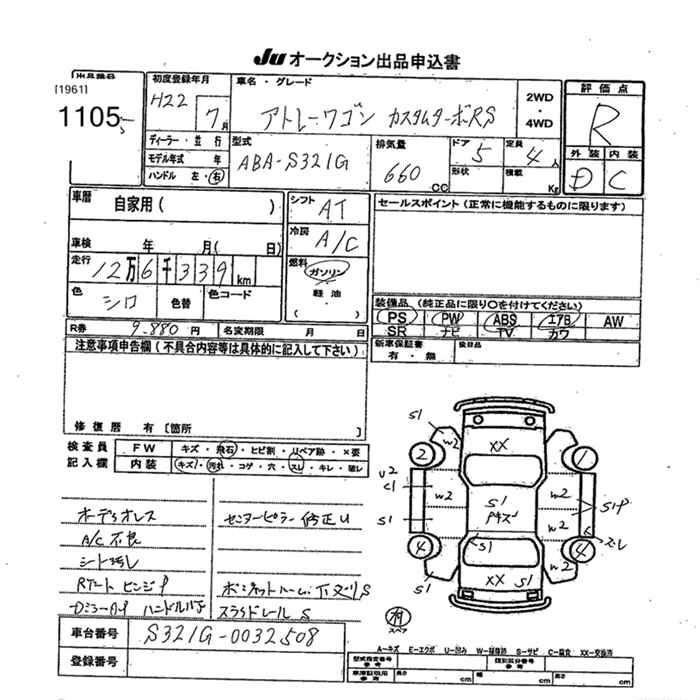 JU オークション出品申込書
出品番号
[1961]
1105
初度登録年月
H22 7月
車名・グレード
アトレーワゴン カスタムターボRS
2WD
・
4WD
評価点
R
ディーラー・並行
モデル年式 年
ハンドル 左・右
型式
ABA-S321G
排気量
660 CC
ドア 5
形状
定員 4人
積載 Kg
外装 内装
D C
車歴
自家用( )
シフト AT
セールスポイント(正常に機能するものに限ります)
冷房 A/C
車検 年 月( 日)
走行
12万6千339km
燃料
ガソリン
軽油
( )
色 シロ 色替 色コード
装備品(純正品に限り○を付けてください)
PS PW ABS エアB AW
SR ナビ TV カワ
R券 9.880円 名変期限 月 日
新車保証書
有・無
後日品
注意事項申告欄(不具合内容等は具体的に記入して下さい)
修復歴 有〔箇所 〕
検査員
記入欄
FW キズ・飛石・ヒビ割・リペア跡・×要
内装 キズ・汚れ・コゲ・穴・スレ・キレ・破レ
オーディオレス
センターピラー修正U
A/C不良
シート汚レ
RゲートヒンジP
ハンドル
スライドレールS
車台番号 S321G-0032508
登録番号
S1
W2
XX
2
1
U2
C1
W2
W2
S1
S1
W2
W2
S1P
スレ
4
4
S1
S1
XX
S1
S1
スペア
A-キズ E-エクボ U-凹み W-補修跡 S-サビ C-腐食 XX-交換済
型式指定番号
参考
類別区分番号
参考
車庫証明用
参考
長さ cm
幅 cm
高さ cm